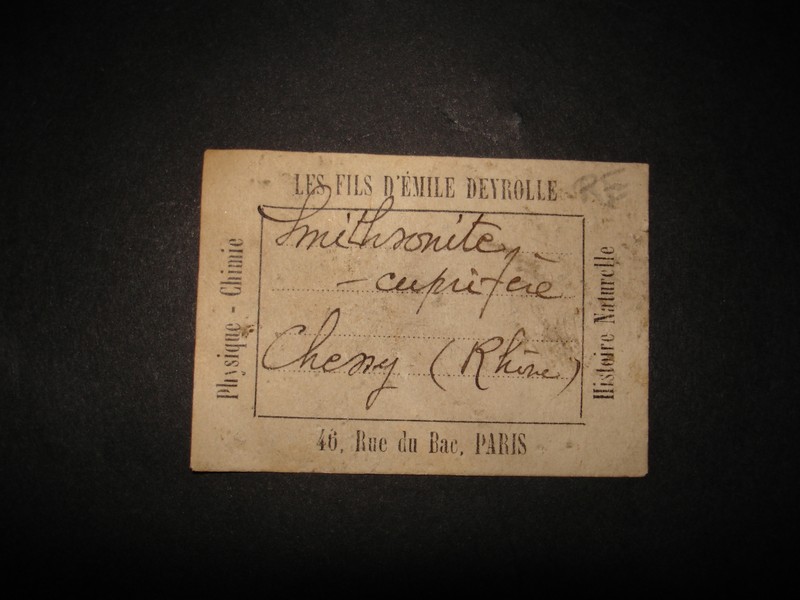 LES FILS D'ÉMILE DEYROLLE
Physique - Chimie
Smithsonite
-cuprifère
Chessy (Rhône)
Histoire Naturelle
46, Rue du Bac, PARIS